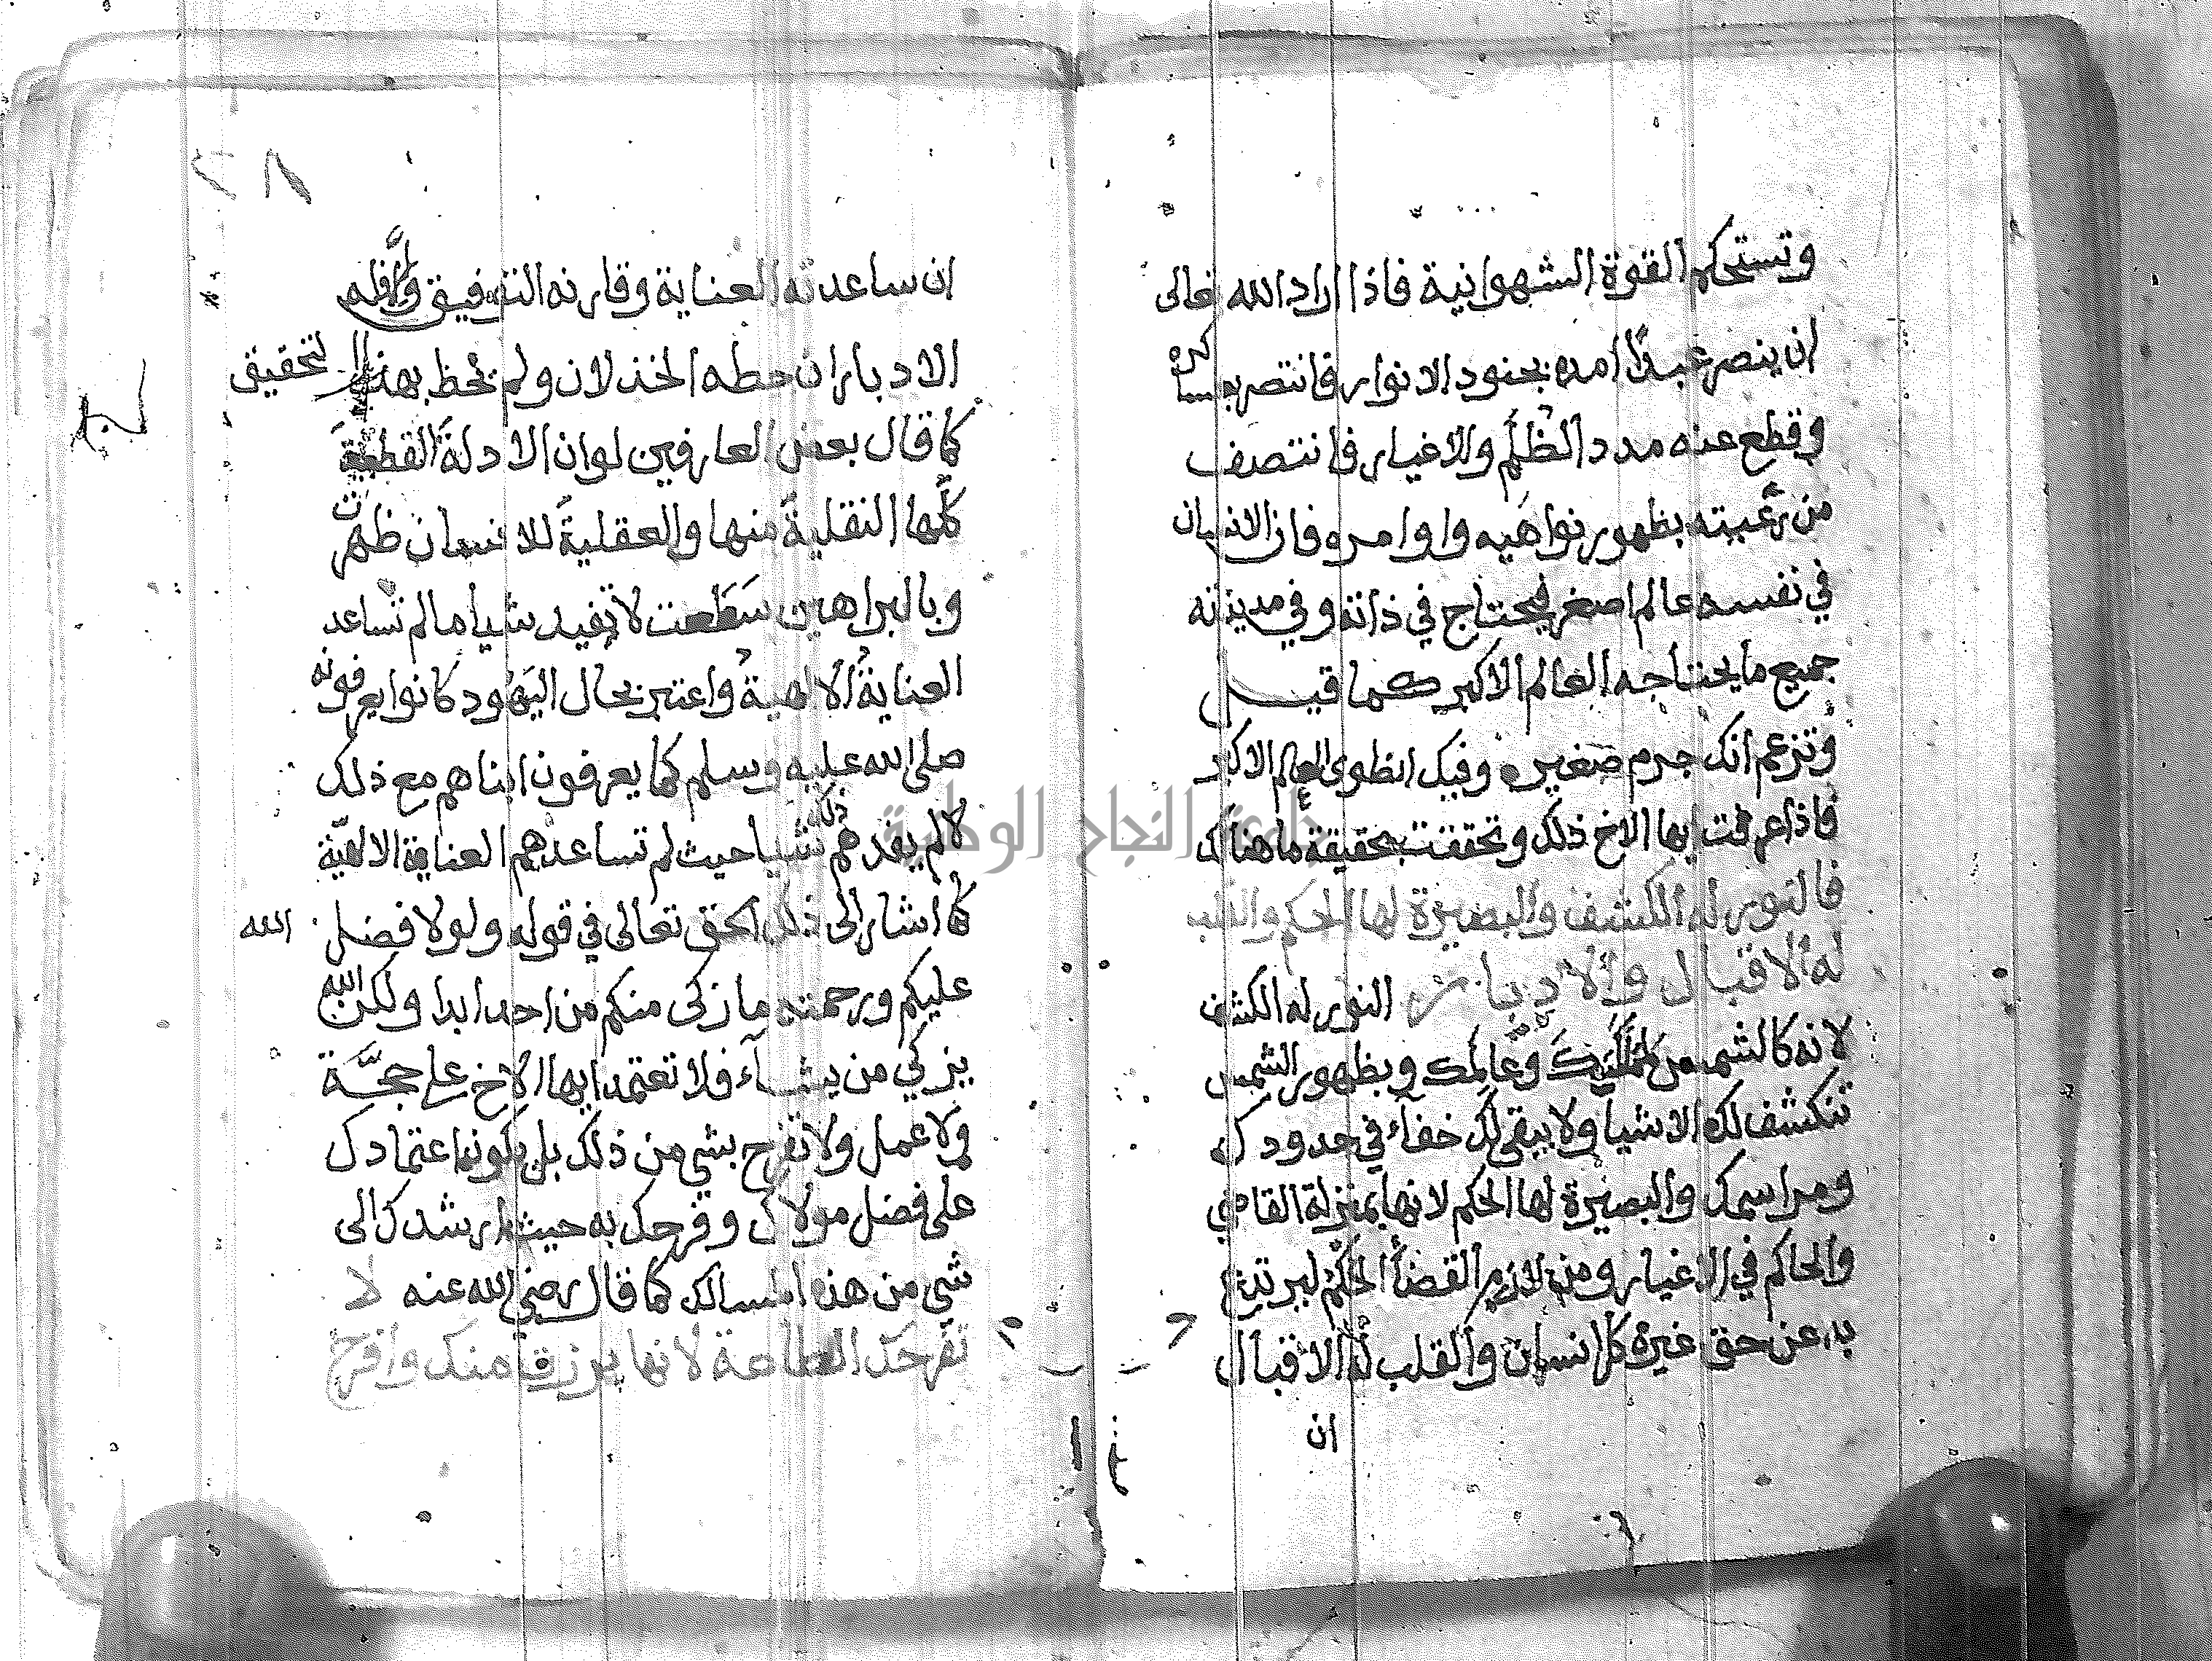 وتستحكم القوة الشهوانية فاذا اراد الله تعالى
ان ينصر عبدا امده بجنود الانوار فانتصر بعساكره
وقطع عنه مدد الظلم والاغيار فانتصف
من رعيته بظهور نواهيه واوامره فان الانسان
في نفسه عالم اصغر فيحتاج في ذاته وفي مدينته
جميع ما يحتاجه العالم الاكبر كما قيل
وتزعم انك جرم صغير وفيك انطوى العالم الاكبر
فاذا عرفت ايها الاخ ذلك وتحققت بحقيقة ما هناك
فالنور له الكشف والبصيرة لها الحكم والقلب
له الاقبال والادبار النور له الكشف
لانه كالشمس وعالمك وبظهور الشمس
تنكشف لك الاشيا ولا يبقى لك خفاء في حدودك
ومراسمك والبصيرة لها الحكم لانها بمنزلة القاضي
والحاكم في الاغيار ومن لازم القضا الحكم
به عن حق غيره كل انسان والقلب له الاقبال
ان
٢٨
ان ساعدته العناية وقارنه التوفيق وله
الادبار ان حطه الخذلان ولم يحظ بهذا التحقيق
كما قال بعض العارفين لو ان الادلة القطعية
كلها النقلية منها والعقلية للانسان ظهرت
وبالبراهين سطعت لا تفيد شيا ما لم تساعد
العناية الالهية واعتبر بحال اليهود كانوا يعرفونه
صلى الله عليه وسلم كما يعرفون ابناهم مع ذلك
لا لم يفدهم ذلك شيا حيث لم تساعدهم العناية الالهية
كما اشار الى ذلك الحق تعالى في قوله ولولا فضل الله
عليكم ورحمته ما زكى منكم من احد ابدا ولكن الله
يزكي من يشاء فلا تعتمد ايها الاخ على حجة
ولا عمل ولا تفرح بشي من ذلك بل يكون اعتمادك
على فضل مولاك وفرحك به حيث ارشدك الى
شي من هذه المسالك كما قال رضي الله عنه لا
تفرحك الطاعة لانها برزت منك وافرح